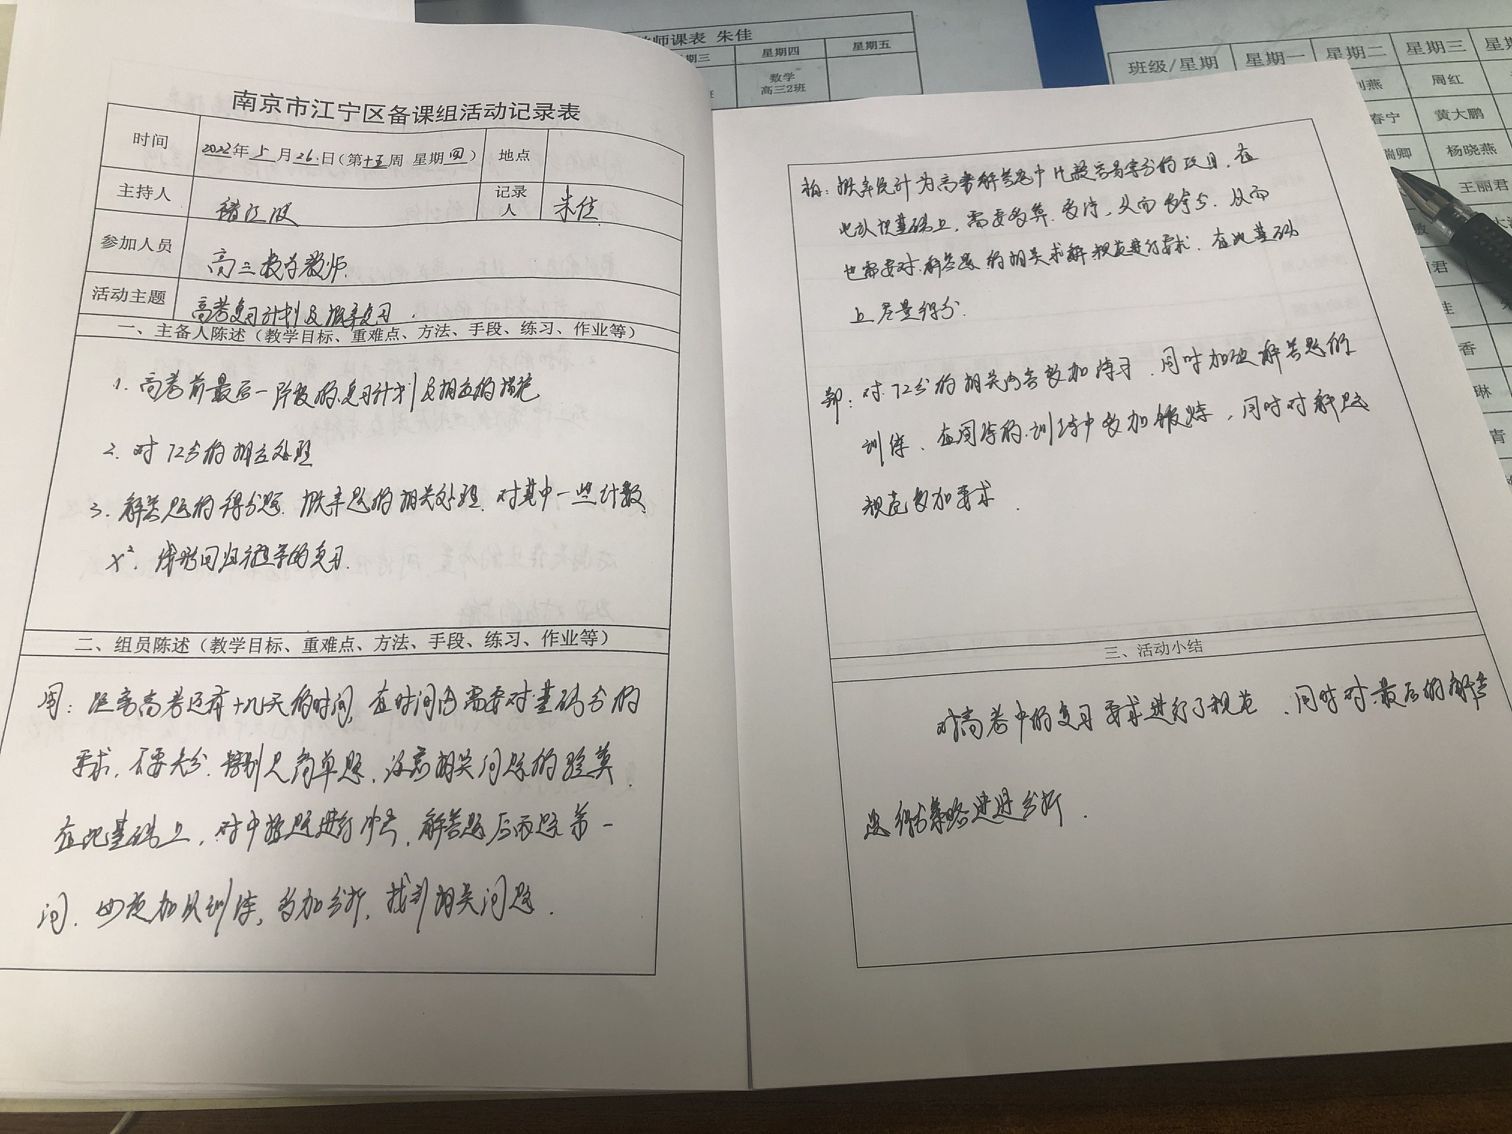 师课表 朱佳
星期四
星期五
数学
高三2班
班级/星期 星期一 星期二 星期三
周红
春宁 黄大鹏
杨晓燕
王丽君
南京市江宁区备课组活动记录表
时间 2022年5月26日(第十五周 星期四) 地点
主持人 记录人 朱佳
参加人员 高三数学教师
活动主题 高考复习计划及概率复习.
一、主备人陈述(教学目标、重难点、方法、手段、练习、作业等)
1. 高考前最后一阶段的复习计划及相应的措施
2. 对72分的相应处理
3. 解答题的得分题. 概率题的相关处理. 对其中一些计数
X². 线性回归方程等的复习.
二、组员陈述(教学目标、重难点、方法、手段、练习、作业等)
周: 距离高考还有十几天的时间, 在时间内需要对基础分的
要求, 不要失分. 特别是简单题, 注意相关问题的验算.
在此基础上, 对中档题进行冲击, 解答题后两题第一
问, 也应加以训练, 多加分析, 找到相关问题.
杨: 概率统计为高考解答题中比较容易得分的项目, 在
此基础上, 需要多算. 多练, 从而
也需要对解答题的相关求解规范进行要求. 在此基础
上尽量得分.
郭: 对72分的相关内容多加练习, 同时加强解答题的
训练, 在周练的训练中多加锻炼, 同时对解题
规范多加要求.
三、活动小结
对高考中的复习要求进行了规范, 同时对最后的解答
题得分策略进行分析.